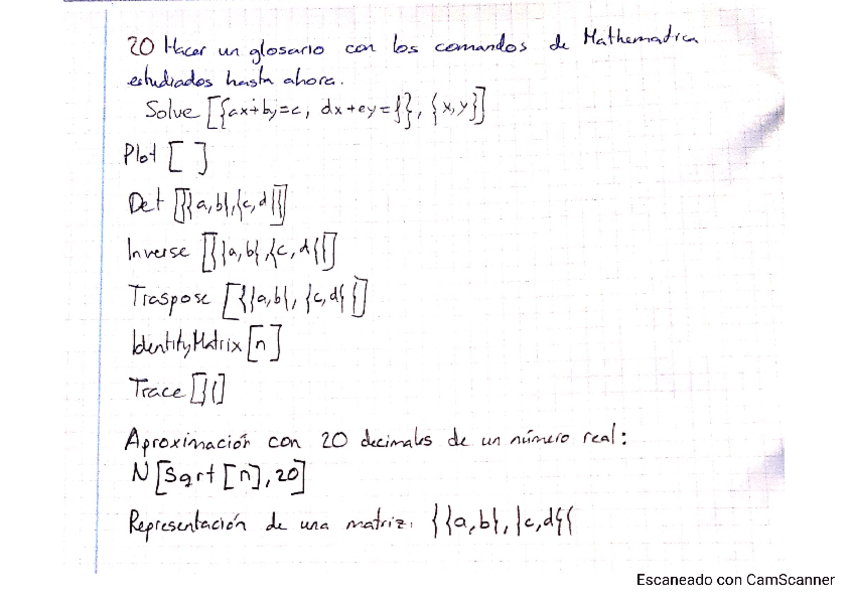 20 Hacer un glosario con los comandos de Mathematica
estudiados hasta ahora.
Solve [{ax+by=c, dx+ey=f}, {x,y}]
Plot [ ]
Det [{{a,b},{c,d}}]
Inverse [{{a,b},{c,d}}]
Traspose [{{a,b},{c,d}}]
IdentityMatrix [n]
Trace [{}]
Aproximación con 20 decimales de un número real:
N [Sqrt [n], 20]
Representación de una matriz: {{a,b},{c,d}}
Escaneado con CamScanner